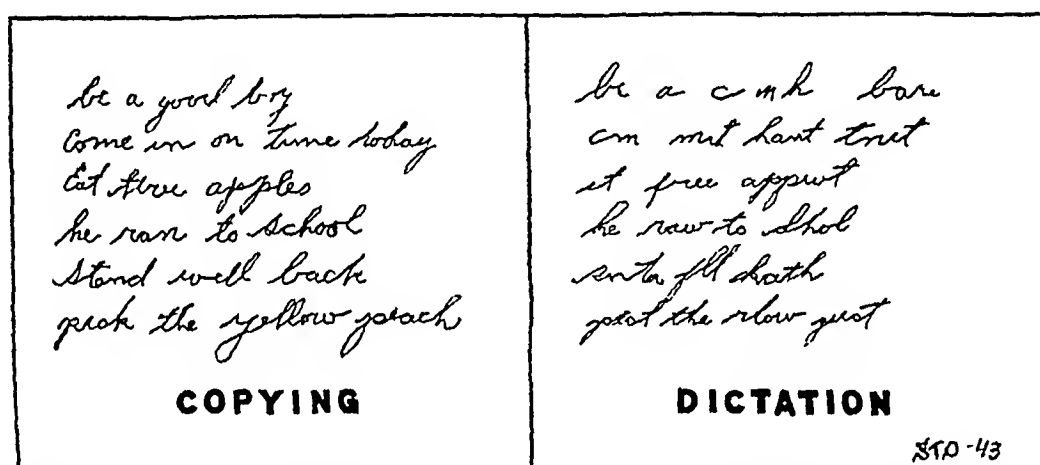 be a good boy
Come in on time today
Eat three apples
he ran to school
Stand well back
pick the yellow peach
COPYING
be a c m h bare
cm mrt hant tnet
it free appwt
he raw to shol
snta fll shath
prot the rlow prot
DICTATION
STD-43